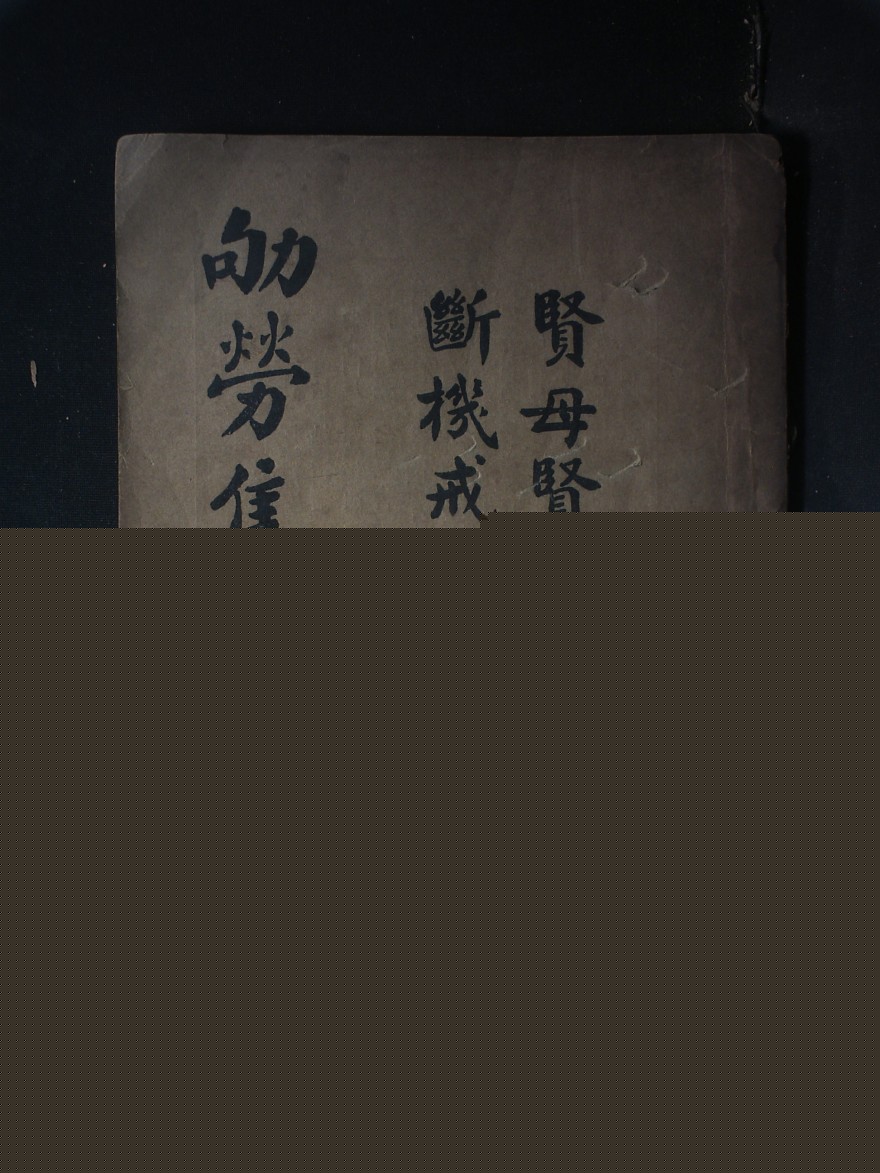 賢母賢
斷機戒
劬勞